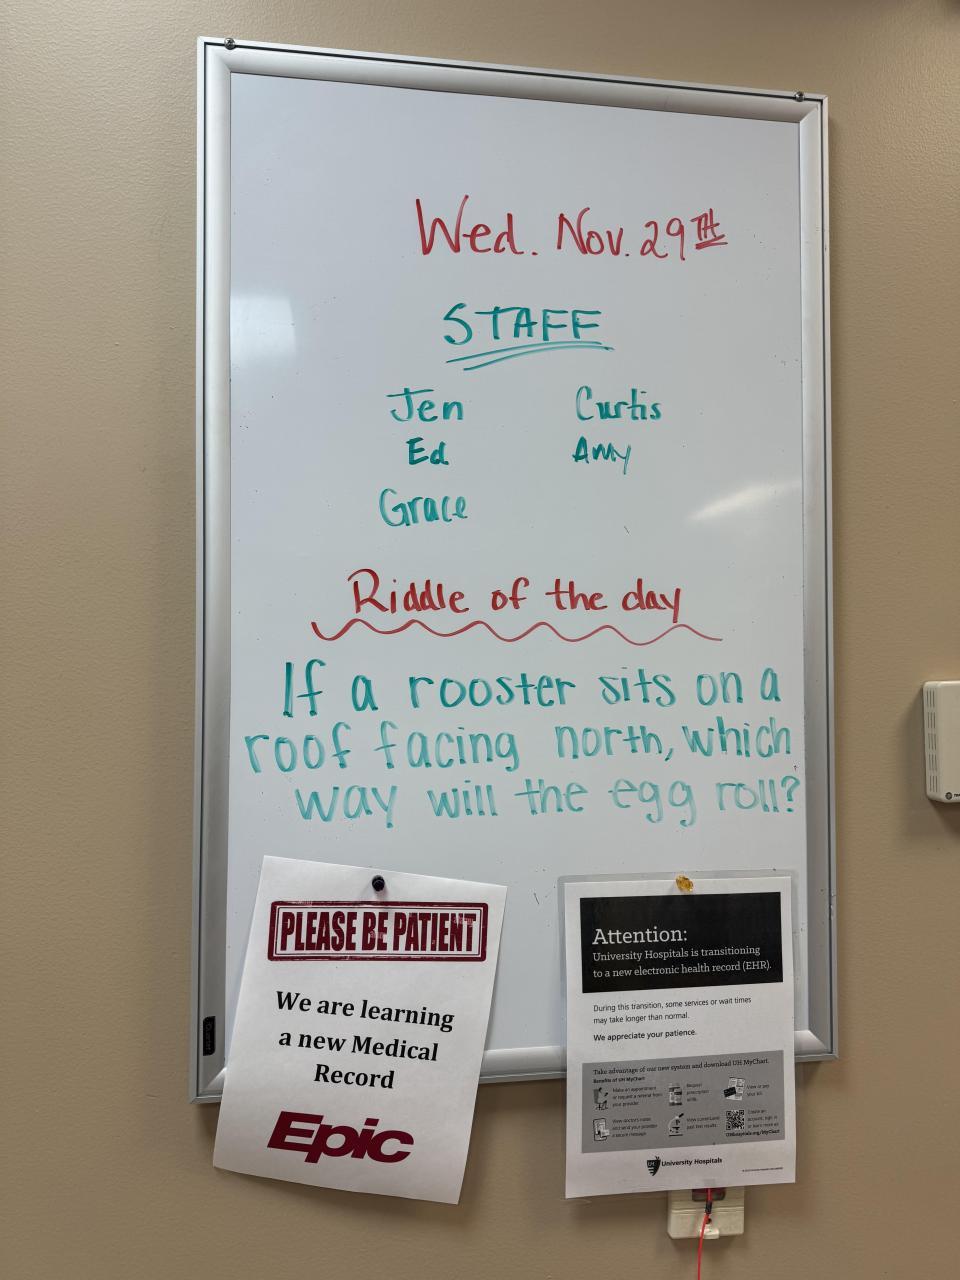 Wed. Nov. 29TH
STAFF
Jen Curtis
Ed Amy
Grace
Riddle of the day
If a rooster sits on a
roof facing north, which
way will the egg roll?
PLEASE BE PATIENT
We are learning
a new Medical
Record
Epic
Attention:
University Hospitals is transitioning
to a new electronic health record (EHR).
During this transition, some services or wait times
may take longer than normal.
We appreciate your patience.
Take advantage of our new system and download UH MyChart.
Benefits of UH MyChart
Make an appointment
or request a referral from
your provider.
Request
prescription
refills.
View or pay
your bill.
View doctor's notes
and send your provider
a secure message
View current and
past test results.
Create an
account, sign in
or learn more at
UHhospitals.org/MyChart
UH
University Hospitals